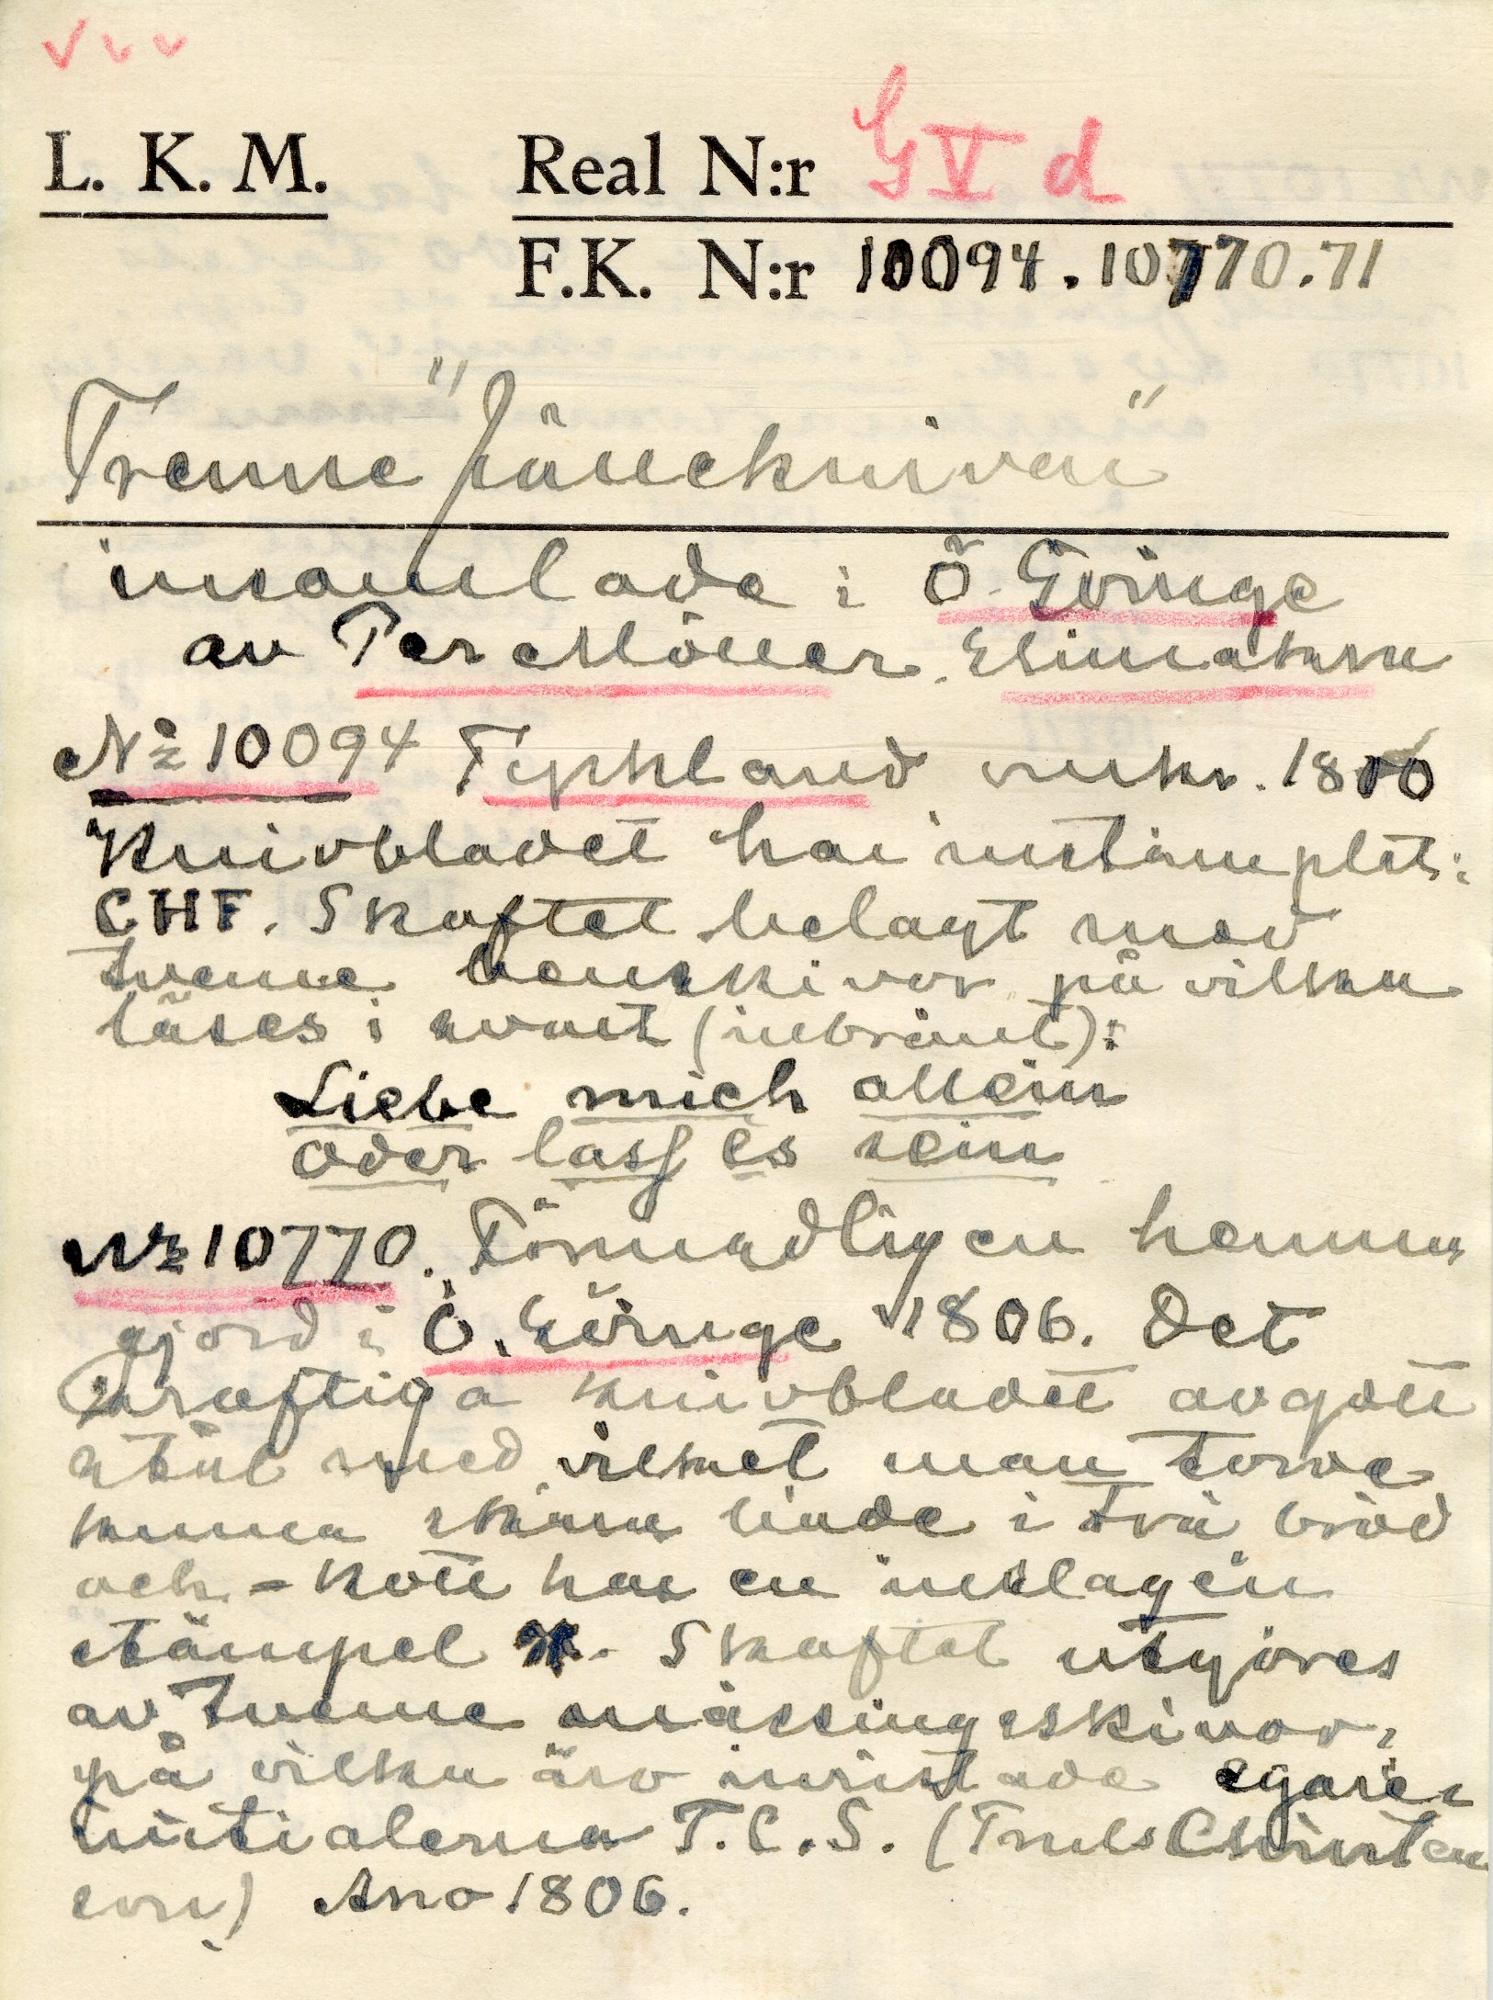 L. K. M. Real N:r G V d
F.K. N:r 10094. 10770.71
Trenne "fälleknivar"
insamlade i Ö. Göinge
av Per Möller.
Nr 10094 Tyskland omkr. 1800
Knivbladet har instämplet:
CHF. Skaftet belagt med
tvenne benskivor på vilka
läses i svart (inbränt):
Liebe mich allein
oder lass es sein
Nr 10770. Förmodligen hemma
gjord i Ö. Göinge 1806. Det
kraftiga knivbladet av gott
stål med vilket man torde
kunna skära både i trä bröd
och - kött har en inslagen
stämpel. Skaftet utgöres
av tvenne mässingsskivor,
på vilka äro inristade egare-
initialerna T.C.S. (Truls Christen
son) Ano 1806.